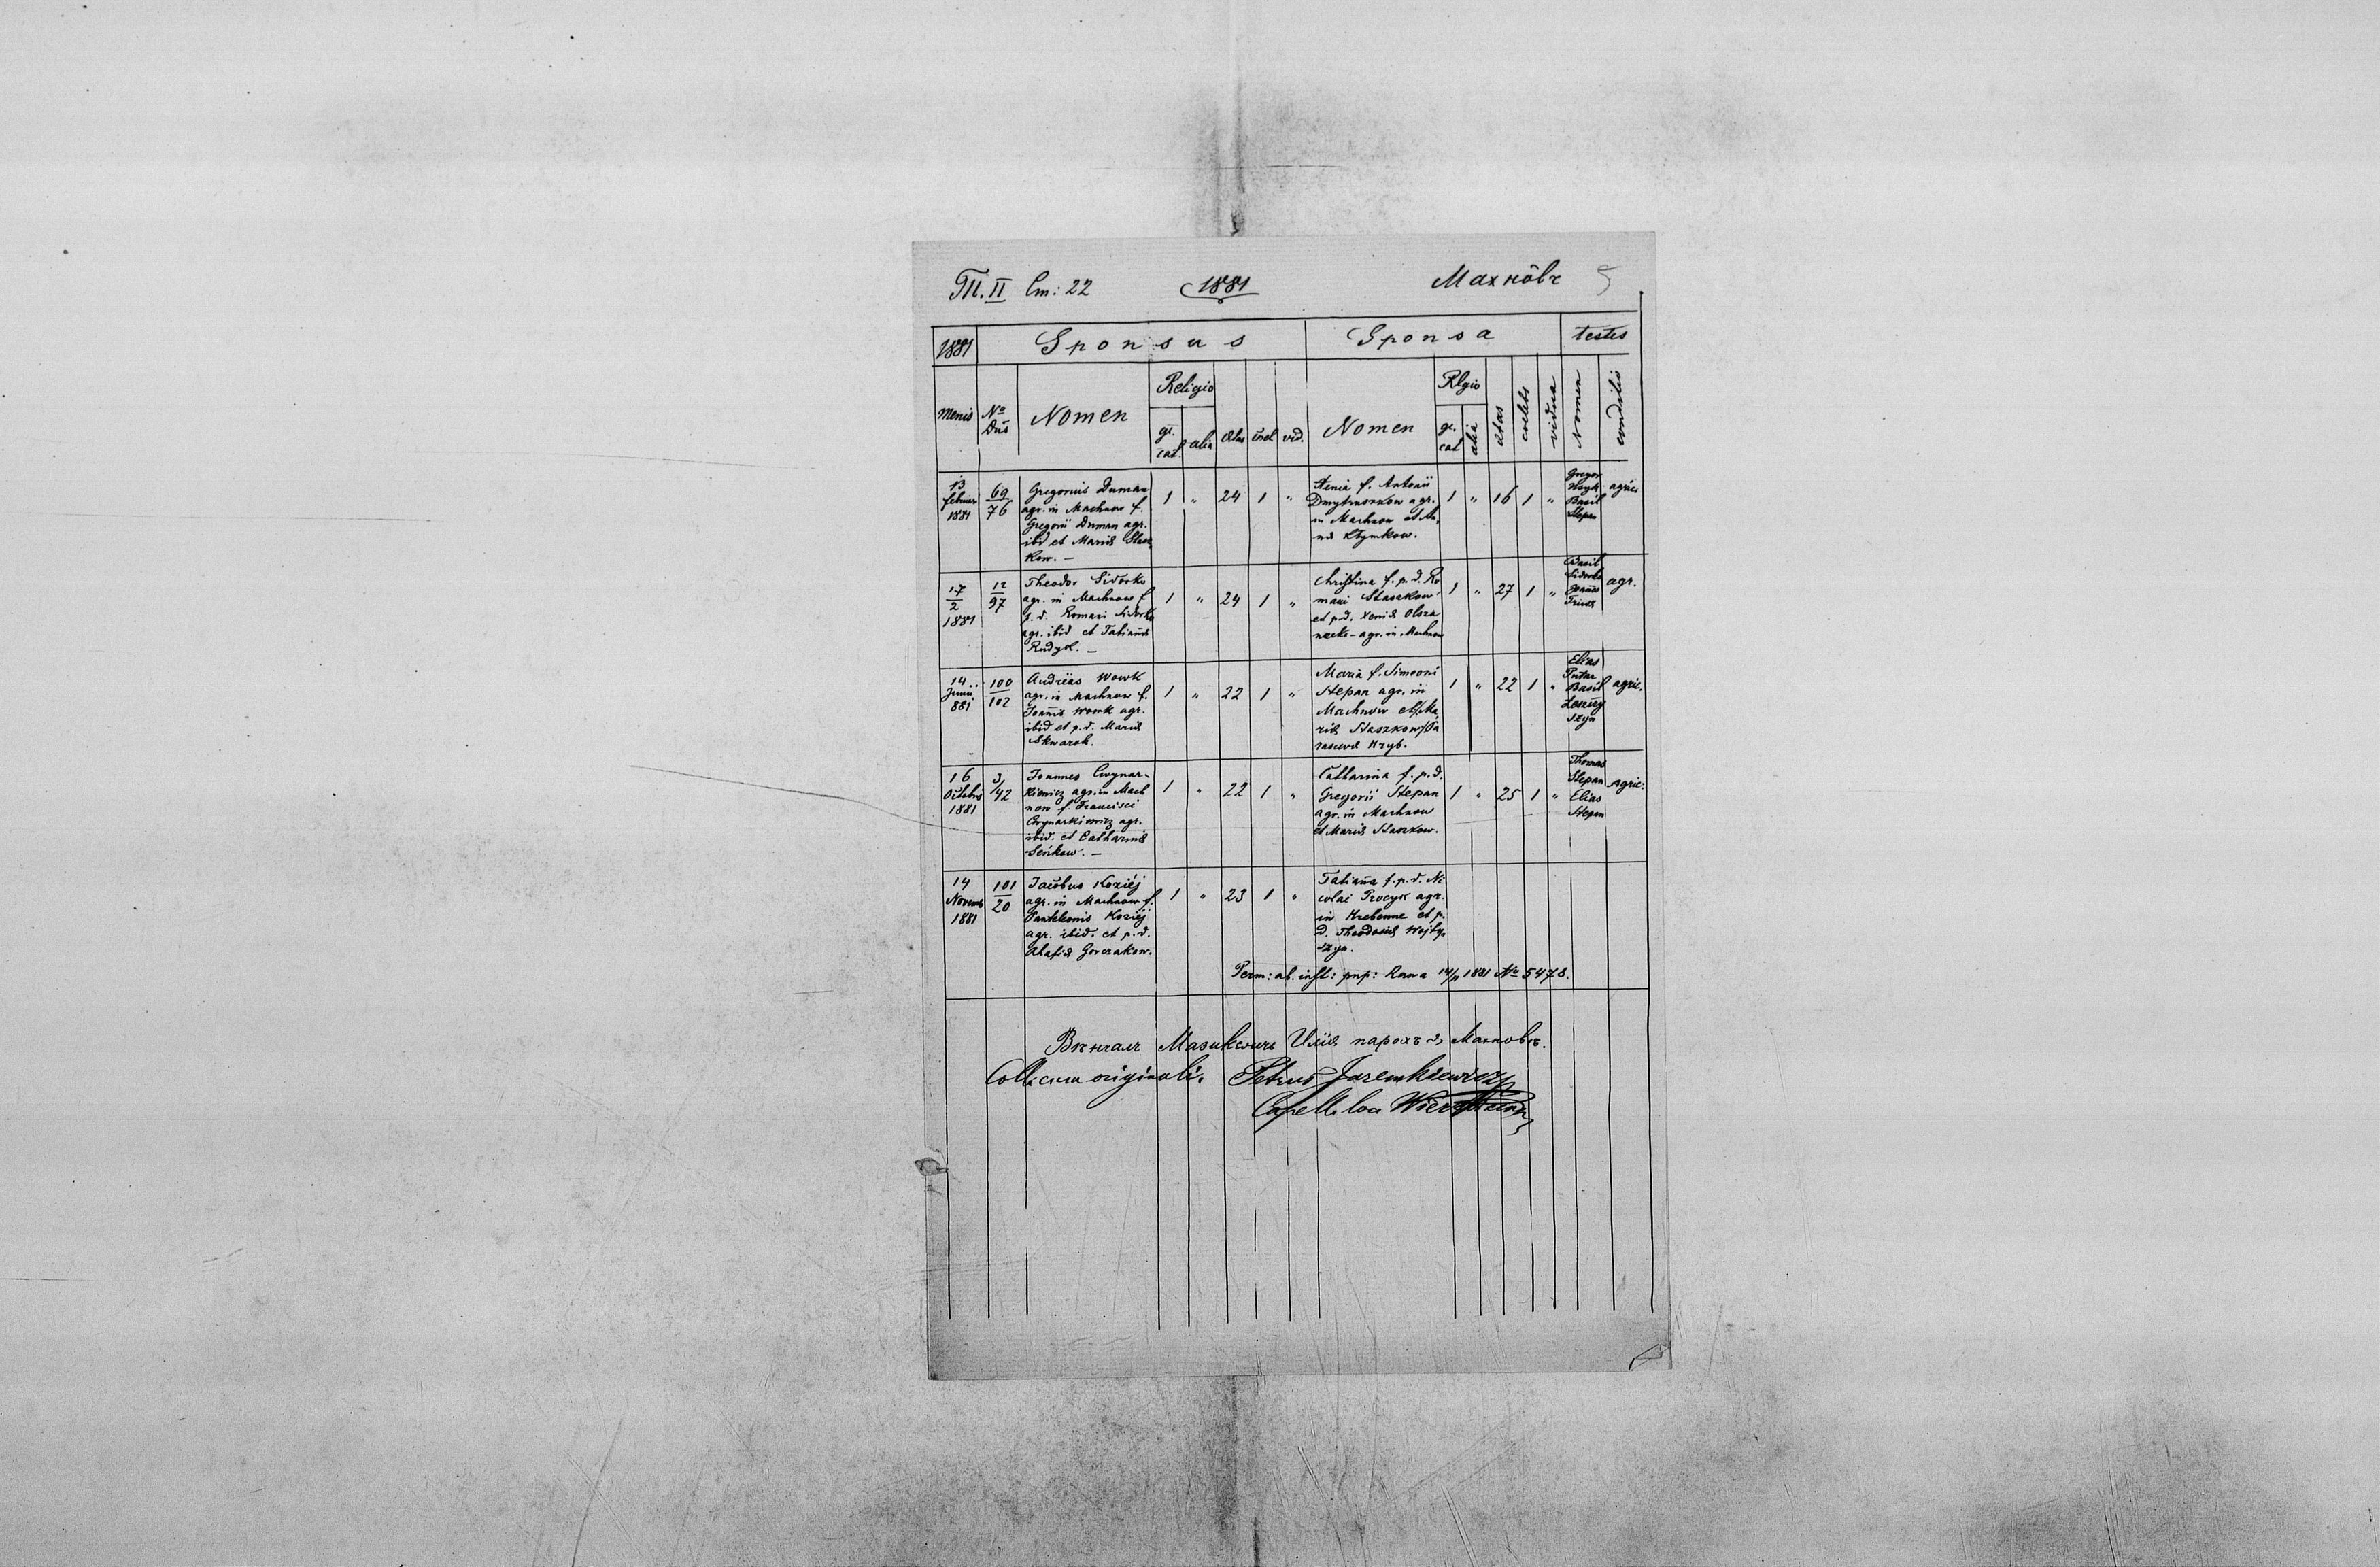 Т. II Ст: 22 1881 Махнôвъ 5
1881 Sponsus Sponsa testes
Mensis Nº Dūs Nomen Religio gr. cat. alia aetas coel vid. Nomen Rlgio gr. cat alia aetas coelebs vidua Nomen conditio
13 februar 1881
69/76
Gregorius Duman
agr. in Machnow f.
Gregorii Duman agr.
ibid et Mariae Stasz
kow. —
1 " 24 1 "
Xenia f. Antonii
Dmytruszkow agr.
in Machnow et An
na Klymkow.
1 " 16 1 "
Gregor
Woyt
Basil
Stepan
agric.
17/2 1881
12/97
Theodor Sidorko
agr. in Machnow f
p. d. Romani Sidorko
agr. ibid et Tatiannae
Rudyk. —
1 " 24 1 "
Christina f. p. d. Ro
mani Staszkow
et p. d. Xeniae Olsza
necka - agr. in Machnow
1 " 27 1 "
Basil
Sidorko
agr.
14 Junii 881
100/102
Andreas Wowk
agr. in Machnow f.
Joannis Wowk agr.
ibid et p. d. Mariae
Skwarok.
1 " 22 1 "
Maria f. Simeoni
Stepan agr. in
Machnow et Ma
riae Staszkow/Ta
rascewa Hryb.
1 " 22 1 "
Elias
Basil
agric.
16 Octobris 1881
3/42
Joannes Cwynar-
kiewicz agr. in Mach
now f. Francisci
Cwynarkiewicz agr.
ibid. et Catharinae
Seńkow. —
1 " 22 1 "
Catharina f. p. d.
Gregorii Stepan
agr. in Machnow
et Mariae Staszkow.
1 " 25 1 "
Thomas
Stepan
Elias
Stepan
agric:
14 Novemb 1881
101/20
Jacobus Koziéj
agr. in Machnow f.
Panteleonis Koziéj
agr. ibid. et p. d.
Ahafia Gorczakow.
1 " 23 1 "
Tatianna f. p. d. Ni
colai Procyk agr.
in Hrebenne et p.
d. Theodosiae Wojty
szyn.
Perm: ab. inst: pnp: Rawa 14/11 1881 Nº 5478.
Вѣнчалъ Мазикевичь Илія парохъ з Махновъ.
Coll. cum originali. Petrus Jaremkiewicz
Capell. loc